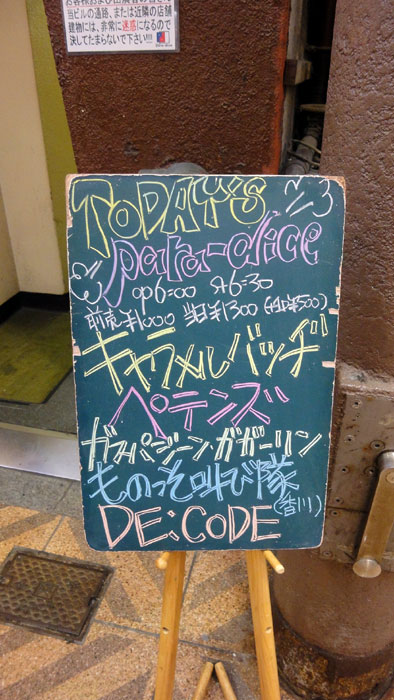 当ビルの通路、または近隣の店舗
建物には、非常に迷惑になるので
決してたまらないで下さい!!!!
TODAY'S
para-dice
OP6:00 ST6:30
前売¥1000 当日¥1300 (+1D¥500)
キャラメルバッヂ
ペテンズ
ガスパジーン・ガガーリン
ものっそ叫び隊
(香川)
DE:CODE